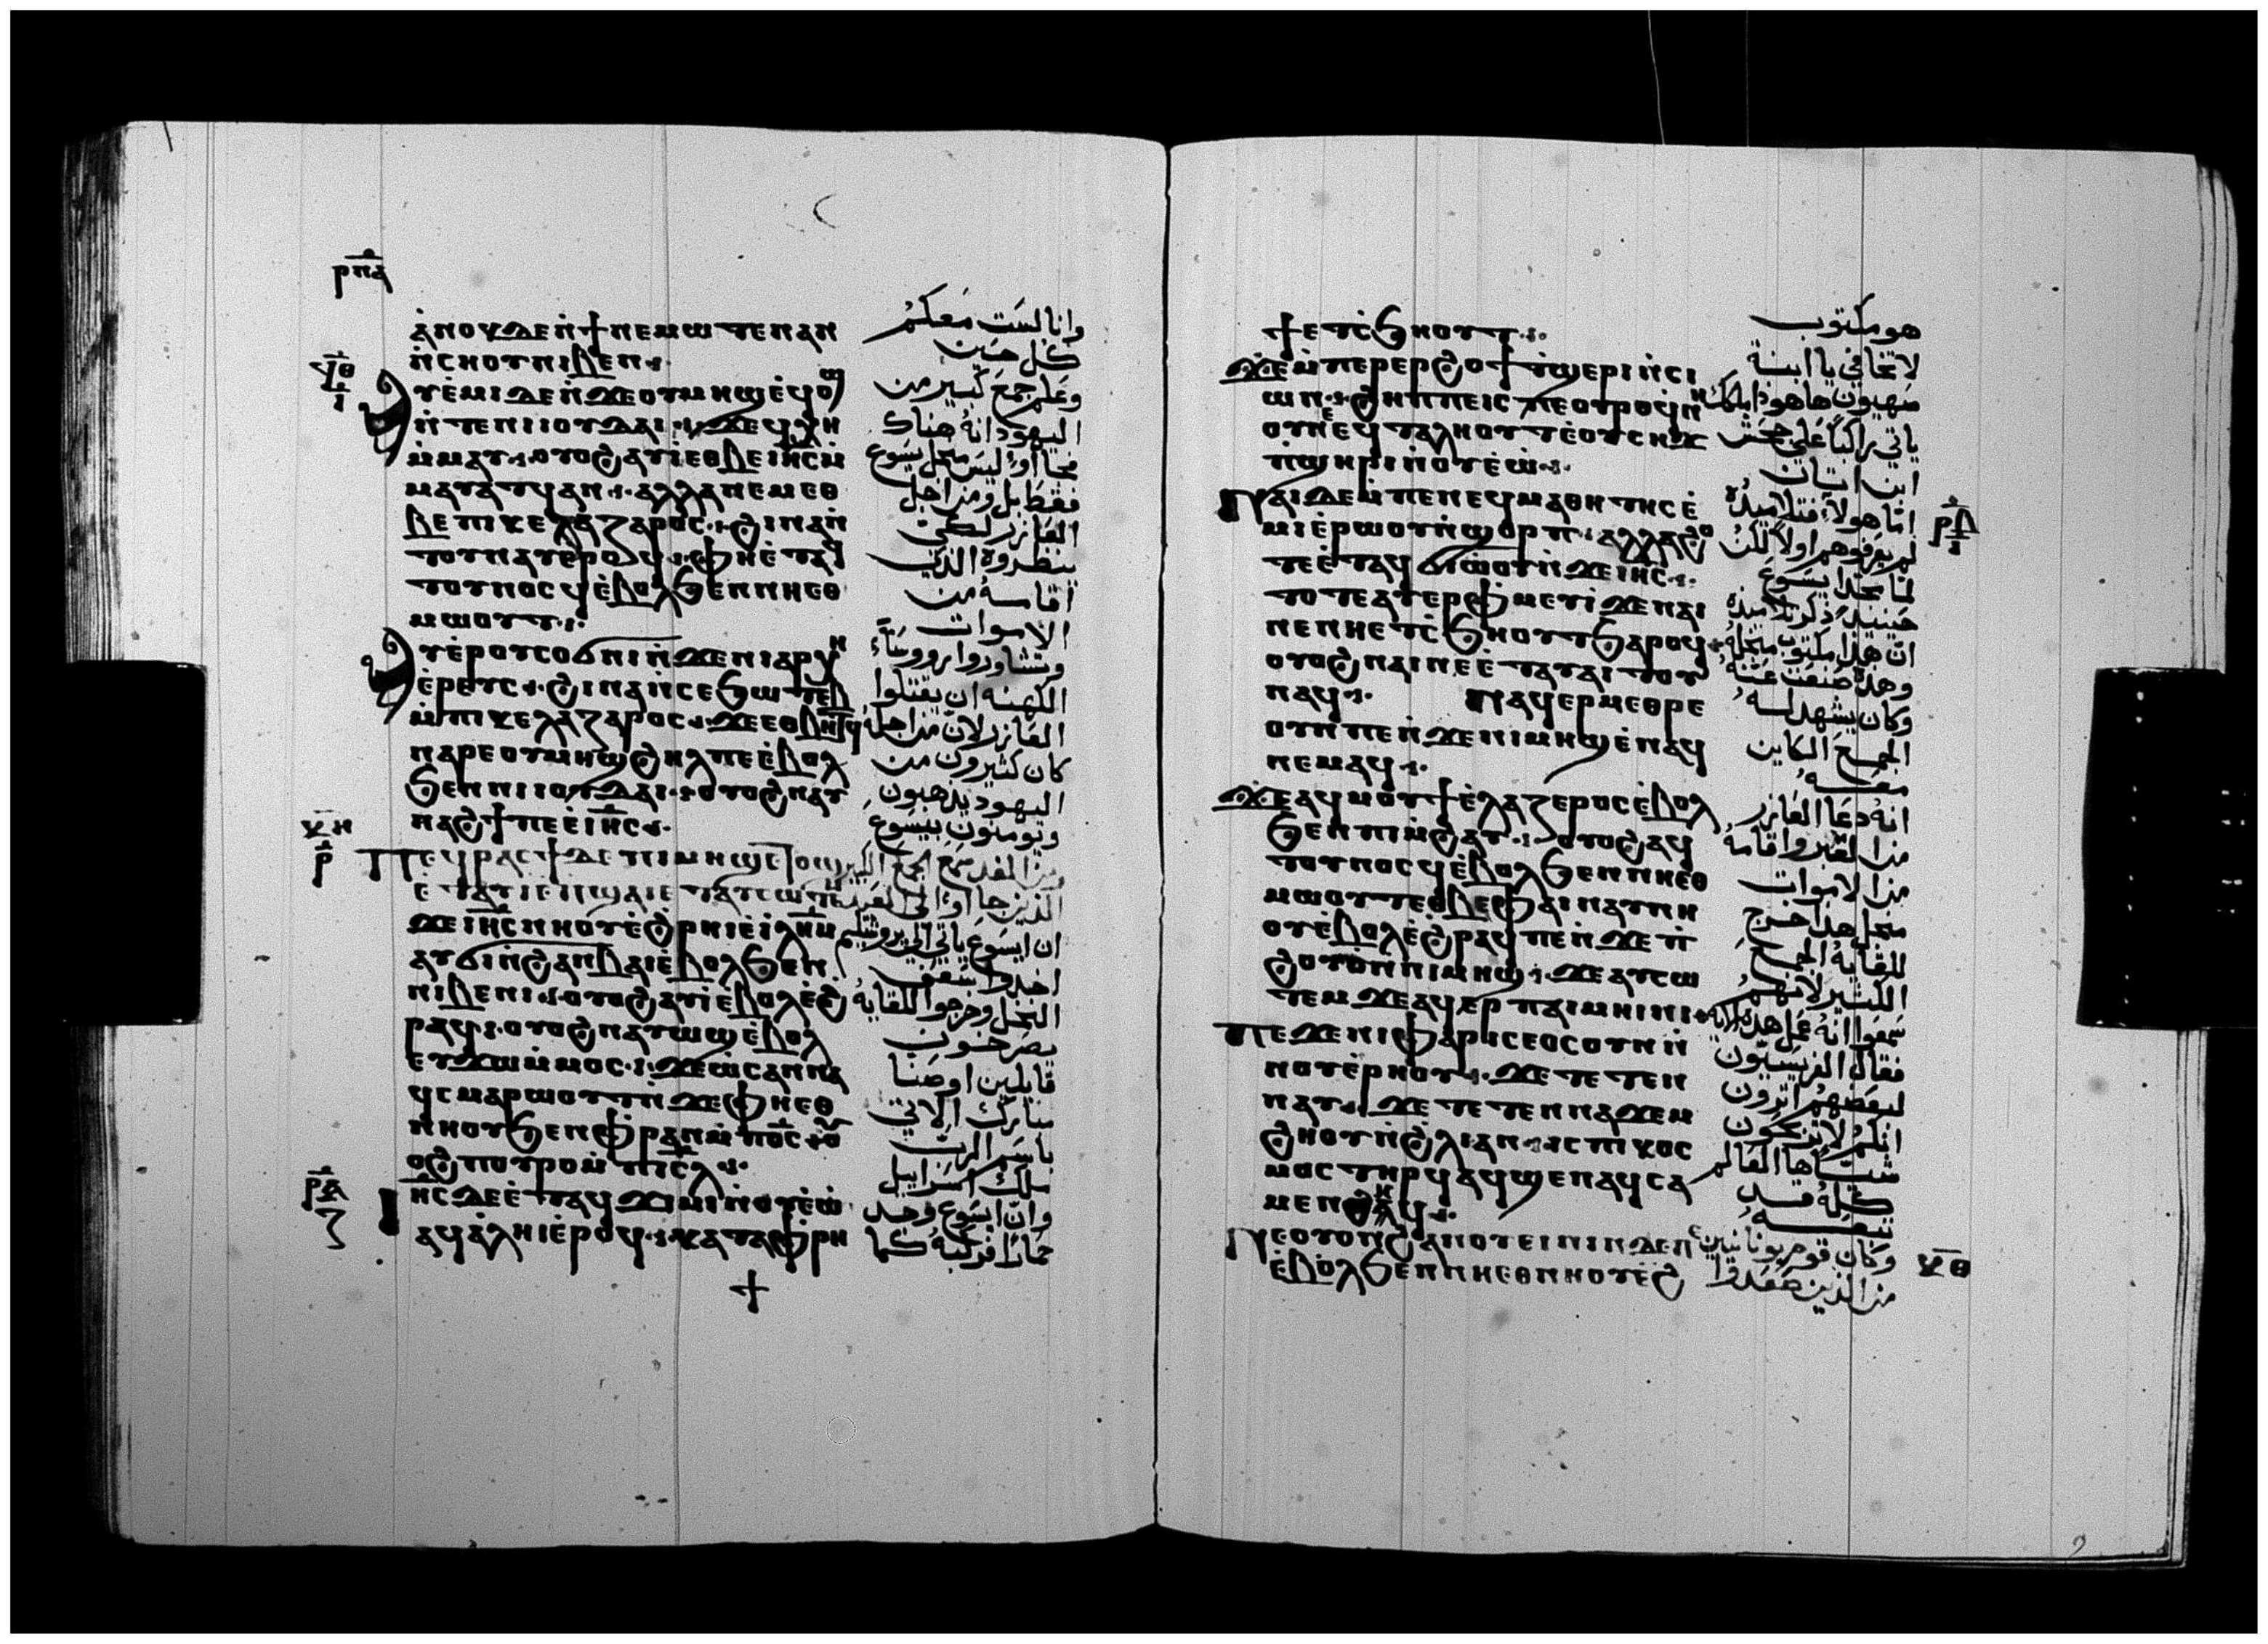 ⲣⲡⲁ
ⲁⲛⲟⲕ ⲇⲉ ⲛ̀ϯⲛⲉⲙⲱⲧⲉⲛ ⲁⲛ
ⲛ̀ⲥⲏⲟⲩ ⲛⲓⲃⲉⲛ
ⲁⲩⲉ̀ⲙⲓ ⲇⲉ ⲛ̀ϫⲉ ⲟⲩⲙⲏϣ ⲉϥⲟϣ
ⲛ̀ⲧⲉ ⲛⲓⲓⲟⲩⲇⲁⲓ ϫⲉ ϥⲭⲏ
ⲙ̀ⲙⲁⲩ ⲟⲩⲟϩ ⲁⲩⲓ̀ ⲉⲑⲃⲉ ⲓⲏⲥ ⲙ̀
ⲙⲁⲩⲁⲧϥ ⲁⲛ ⲁⲗⲗⲁ ⲛⲉⲙ ⲉⲑ
ⲃⲉ ⲡⲓⲕⲉⲗⲁⲍⲁⲣⲟⲥ ϩⲓⲛⲁ ⲛ̀
ⲧⲟⲩⲛⲁⲩ ⲉ̀ⲣⲟϥ ⲫⲏ ⲉ̀ⲧⲁϥ
ⲧⲟⲩⲛⲟⲥϥ ⲉ̀ⲃⲟⲗ ϧⲉⲛ ⲛⲏⲉⲑ
ⲙⲱⲟⲩⲧ
ⲁⲩⲉⲣⲟⲩⲥⲟϭⲛⲓ ⲛ̀ϫⲉ ⲛⲓⲁⲣⲭⲏ
ⲉ̀ⲣⲉⲩⲥ ϩⲓⲛⲁ ⲛ̀ⲥⲉϧⲱⲧⲉⲃ
ⲙ̀ⲡⲓⲕⲉⲗⲁⲍⲁⲣⲟⲥ ϫⲉ ⲉⲑⲃⲏⲧϥ
ⲛⲁⲣⲉ ⲟⲩⲙⲏϣ ϩⲏⲗ ⲡⲉ ⲉ̀ⲃⲟⲗ
ϧⲉⲛ ⲛⲓⲓⲟⲩⲇⲁⲓ ⲟⲩⲟϩ ⲛⲁⲩ
ⲛⲁϩϯ ⲡⲉ ⲉ̀ⲓⲏⲥ
ⲡⲉϥⲣⲁⲥϯ ⲇⲉ ⲡⲓⲙⲏϣ ⲉⲧⲟϣ
ⲉ̀ⲧⲁⲩⲓ̀ ⲉ̀ⲡϣⲁⲓ ⲉ̀ⲧⲁⲩⲥⲱⲧⲉⲙ
ϫⲉ ⲓⲏⲥ ⲛⲏⲟⲩ ⲉ̀ϩⲣⲏⲓ ⲉ̀ⲓⲗⲏⲙ
ⲁⲩϭⲓ ⲛ̀ϩⲁⲛⲃⲁⲓ ⲉ̀ⲃⲟⲗ ϧⲉⲛ
ⲛⲓⲃⲉⲛⲓ ⲟⲩⲟϩ ⲁⲩⲓ̀ ⲉ̀ⲃⲟⲗ ⲉ̀ϩ
ⲣⲁϥ ⲟⲩⲟϩ ⲛⲁⲩⲱϣ ⲉ̀ⲃⲟⲗ
ⲉⲩϫⲱ ⲙ̀ⲙⲟⲥ ϫⲉ ⲱ̀ⲥⲁⲛⲛⲁ
ϥⲥⲙⲁⲣⲱⲟⲩⲧ ⲛ̀ϫⲉ ⲫⲏⲉⲑ
ⲛⲏⲟⲩ ϧⲉⲛ ⲫⲣⲁⲛ ⲙ̀ⲡⲟⲥ ⲟⲩ
ⲟϩ ⲡⲟⲩⲣⲟ ⲙ̀ⲡⲓⲥⲗ
ⲓⲏⲥ ⲇⲉ ⲉ̀ⲧⲁϥϫⲓⲙⲓ ⲛ̀ⲟⲩⲉ̀ⲱ
ⲁϥⲁ̀ⲗⲏⲓ ⲉ̀ⲣⲟϥ ⲕⲁⲧⲁ ⲫⲣⲏ
وانا لست معكم
كل حين
وعلم جمع كبير من
اليهود انه هناك
فجاأوا ليس من اجل يسوع
فقط بل ومن اجل
العازر لكى
ينظروه الذى
اقامه من
الاموات
وتشاوروا روؤساء
الكهنه ان يقتلوا
العازر لان من اجله
كان كثيرون من
اليهود يذهبون
ويومنون بيسوع
ومن الغد جمع الكبير
الذين جاأوا الى العيد
ان ايسوع ياتى الى يروشليم
اخذوا سعف
النخل وخرجوا للقايه
يصرخون
قايلين اوصنا
مبارك الاتى
باسم الرب
ملك اسراييل
وان ايسوع وجد
حمارا فركبه كما
ϯ ⲉⲧⲥ̀ϧⲏⲟⲩⲧ
ϫⲉ ⲙ̀ⲡⲉⲣⲉⲣϩⲟϯ ⲧ̀ϣⲉⲣⲓ ⲛ̀ⲥⲓ
ⲱⲛ ϩⲏⲡⲡⲉ ⲓⲥ ⲡⲉⲟⲩⲣⲟ ϥⲛⲏ
ⲟⲩ ⲉϥⲧⲁⲗⲏⲟⲩⲧ ⲉ̀ⲟⲩⲥⲏϫ
ⲡ̀ϣⲏⲣⲓ ⲛ̀ⲟⲩⲉ̀ⲱ̀
ⲛⲁⲓ ⲇⲉ ⲙ̀ⲡⲉ ⲛⲉϥⲙⲁⲑⲏⲧⲏⲥ ⲉ̀
ⲙⲓ ⲉ̀ⲣⲱⲟⲩ ⲛ̀ϣⲟⲣⲡ ⲁⲗⲗⲁ ϩⲟ
ⲧⲉ ⲉ̀ⲧⲁϥϭⲓⲱ̀ⲟⲩ ⲛ̀ϫⲉ ⲓⲏⲥ
ⲧⲟⲧⲉ ⲁⲩⲉⲣⲫⲙⲉⲩⲓ̀ ϫⲉ ⲛⲁⲓ
ⲛⲉ ⲛⲏⲉⲧⲥ̀ϧⲏⲟⲩⲧ ϧⲁⲣⲟϥ
ⲟⲩⲟϩ ⲛⲁⲓ ⲛⲉ ⲉ̀ⲧⲁⲩⲁⲓⲧⲟⲩ
ⲛⲁϥ ⲛⲁϥⲉⲣⲙⲉⲑⲣⲉ
ⲟⲩⲛ ⲡⲉ ⲛ̀ϫⲉ ⲡⲓⲙⲏϣ ⲉ̀ⲛⲁϥ
ⲛⲉⲙⲁϥ
ϫⲉ ⲁϥⲙⲟⲩϯ ⲉ̀ⲗⲁⲍⲉⲣⲟⲥ ⲉ̀ⲃⲟⲗ
ϧⲉⲛ ⲡⲓⲙ̀ϩⲁⲩ ⲟⲩⲟϩ ⲁϥ
ⲧⲟⲩⲛⲟⲥϥ ⲉ̀ⲃⲟⲗ ϧⲉⲛ ⲛⲏⲉⲑ
ⲙⲱⲟⲩⲧ ⲉⲑⲃⲉ ⲫⲁⲓ ⲛⲁⲩⲛⲏ
ⲟⲩ ⲉ̀ⲃⲟⲗ ⲉ̀ϩⲣⲁϥ ⲡⲉ ⲛ̀ϫⲉ ⲡ̀
ϩⲟⲩⲟ̀ ⲛⲓⲙⲏϣ ϫⲉ ⲁⲩⲥⲱ
ⲧⲉⲙ ϫⲉ ⲁϥⲉⲣ ⲡⲁⲓⲙⲏⲓⲛⲓ
ⲡⲉϫⲉ ⲛⲓⲫⲁⲣⲓⲥⲉⲟⲥ ⲟⲩⲛ ⲛ̀
ⲛⲟⲩⲉ̀ⲣⲏⲟⲩ ϫⲉ ⲧⲉⲧⲉⲛ
ⲛⲁⲩ ϫⲉ ⲧⲉⲧⲉⲛⲛⲁϫⲉⲙ
ϩⲏⲟⲩ ⲛ̀ϩⲗⲓ ⲁⲛ ⲓⲥ ⲡⲓⲕⲟⲥ
ⲙⲟⲥ ⲧⲏⲣϥ ⲁϥϣⲉⲛⲁϥ ⲥⲁ
ⲙⲉⲛϩⲏϥ
ⲛⲉ ⲟⲩⲟⲛ ϩⲁⲛⲟⲩⲉⲓⲛⲓⲛ ⲇⲉ
ⲉ̀ⲃⲟⲗ ϧⲉⲛ ⲛⲏⲉⲑⲛⲏⲟⲩ ⲉ̀ϩ
هو مكتوب
لا تخافى يا ابنة
صهيون هاهوذا ملكك
ياتى راكبا على جحش
ابن اتان
اما هولاء فتلاميذه
لم يعرفوهم اولا لكن
لما مجد ايسوع
حينيذ ذكر تلاميذه
ان هذا مكتوب من اجله
وهذه صنعت عنه
وكان يشهد له
الجمع الكاين
معه
انه دعا العازر
من القبر واقامه
من الاموات
من اجل هذا خرج
للقايه الجمع
الكثير لانهم
سمعوا انه عمل هذه الايه
فقال الفريسيون
لبعضهم اترون
انكم لا تربحون
شيا ها العالم
كله قد
تبعه
وكان قوم يونانيين
من الذين صعدوا